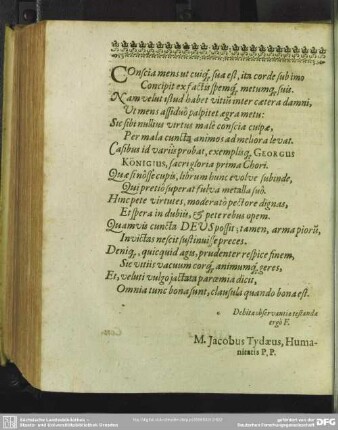 COnscia mens ut cuiq; sua est, ita corde sub imo
Concipit ex factis spemq; metumq; suis.
Nam velut istud habet vitiū inter cætera damni,
Ut mens assiduò palpitet ægra metu:
Sic sibi nullius virtus malè conscia culpæ,
Per mala cunctā animos ad meliora levat.
Casibus id variis probat, exemplisq; GEORGUS
KÖNIGIUS, sacri gloria prima Chori.
Quæ si nôsse cupis, librum hunc evolve subinde,
Qui pretiô superat fulva metalla suô.
Hinc pete virtutes, moderatô pectore dignas,
Et spera in dubiis, & pete rebus opem.
Quamvis cuncta DEUS possit; tamen, arma piorū,
Invictas nescit sustinuisse preces.
Deniq; quicquid agis, prudenter respice finem,
Sic vitiis vacuum corq; animumq; geres,
Et, veluti vulgo jactata paræmia dicit,
Omnia tunc bona sunt, clausula quando bona est.
Debitæ observantiæ testandæ
ergò F.
M. Jacobus Tydæus, Huma-
nitatis P. P.